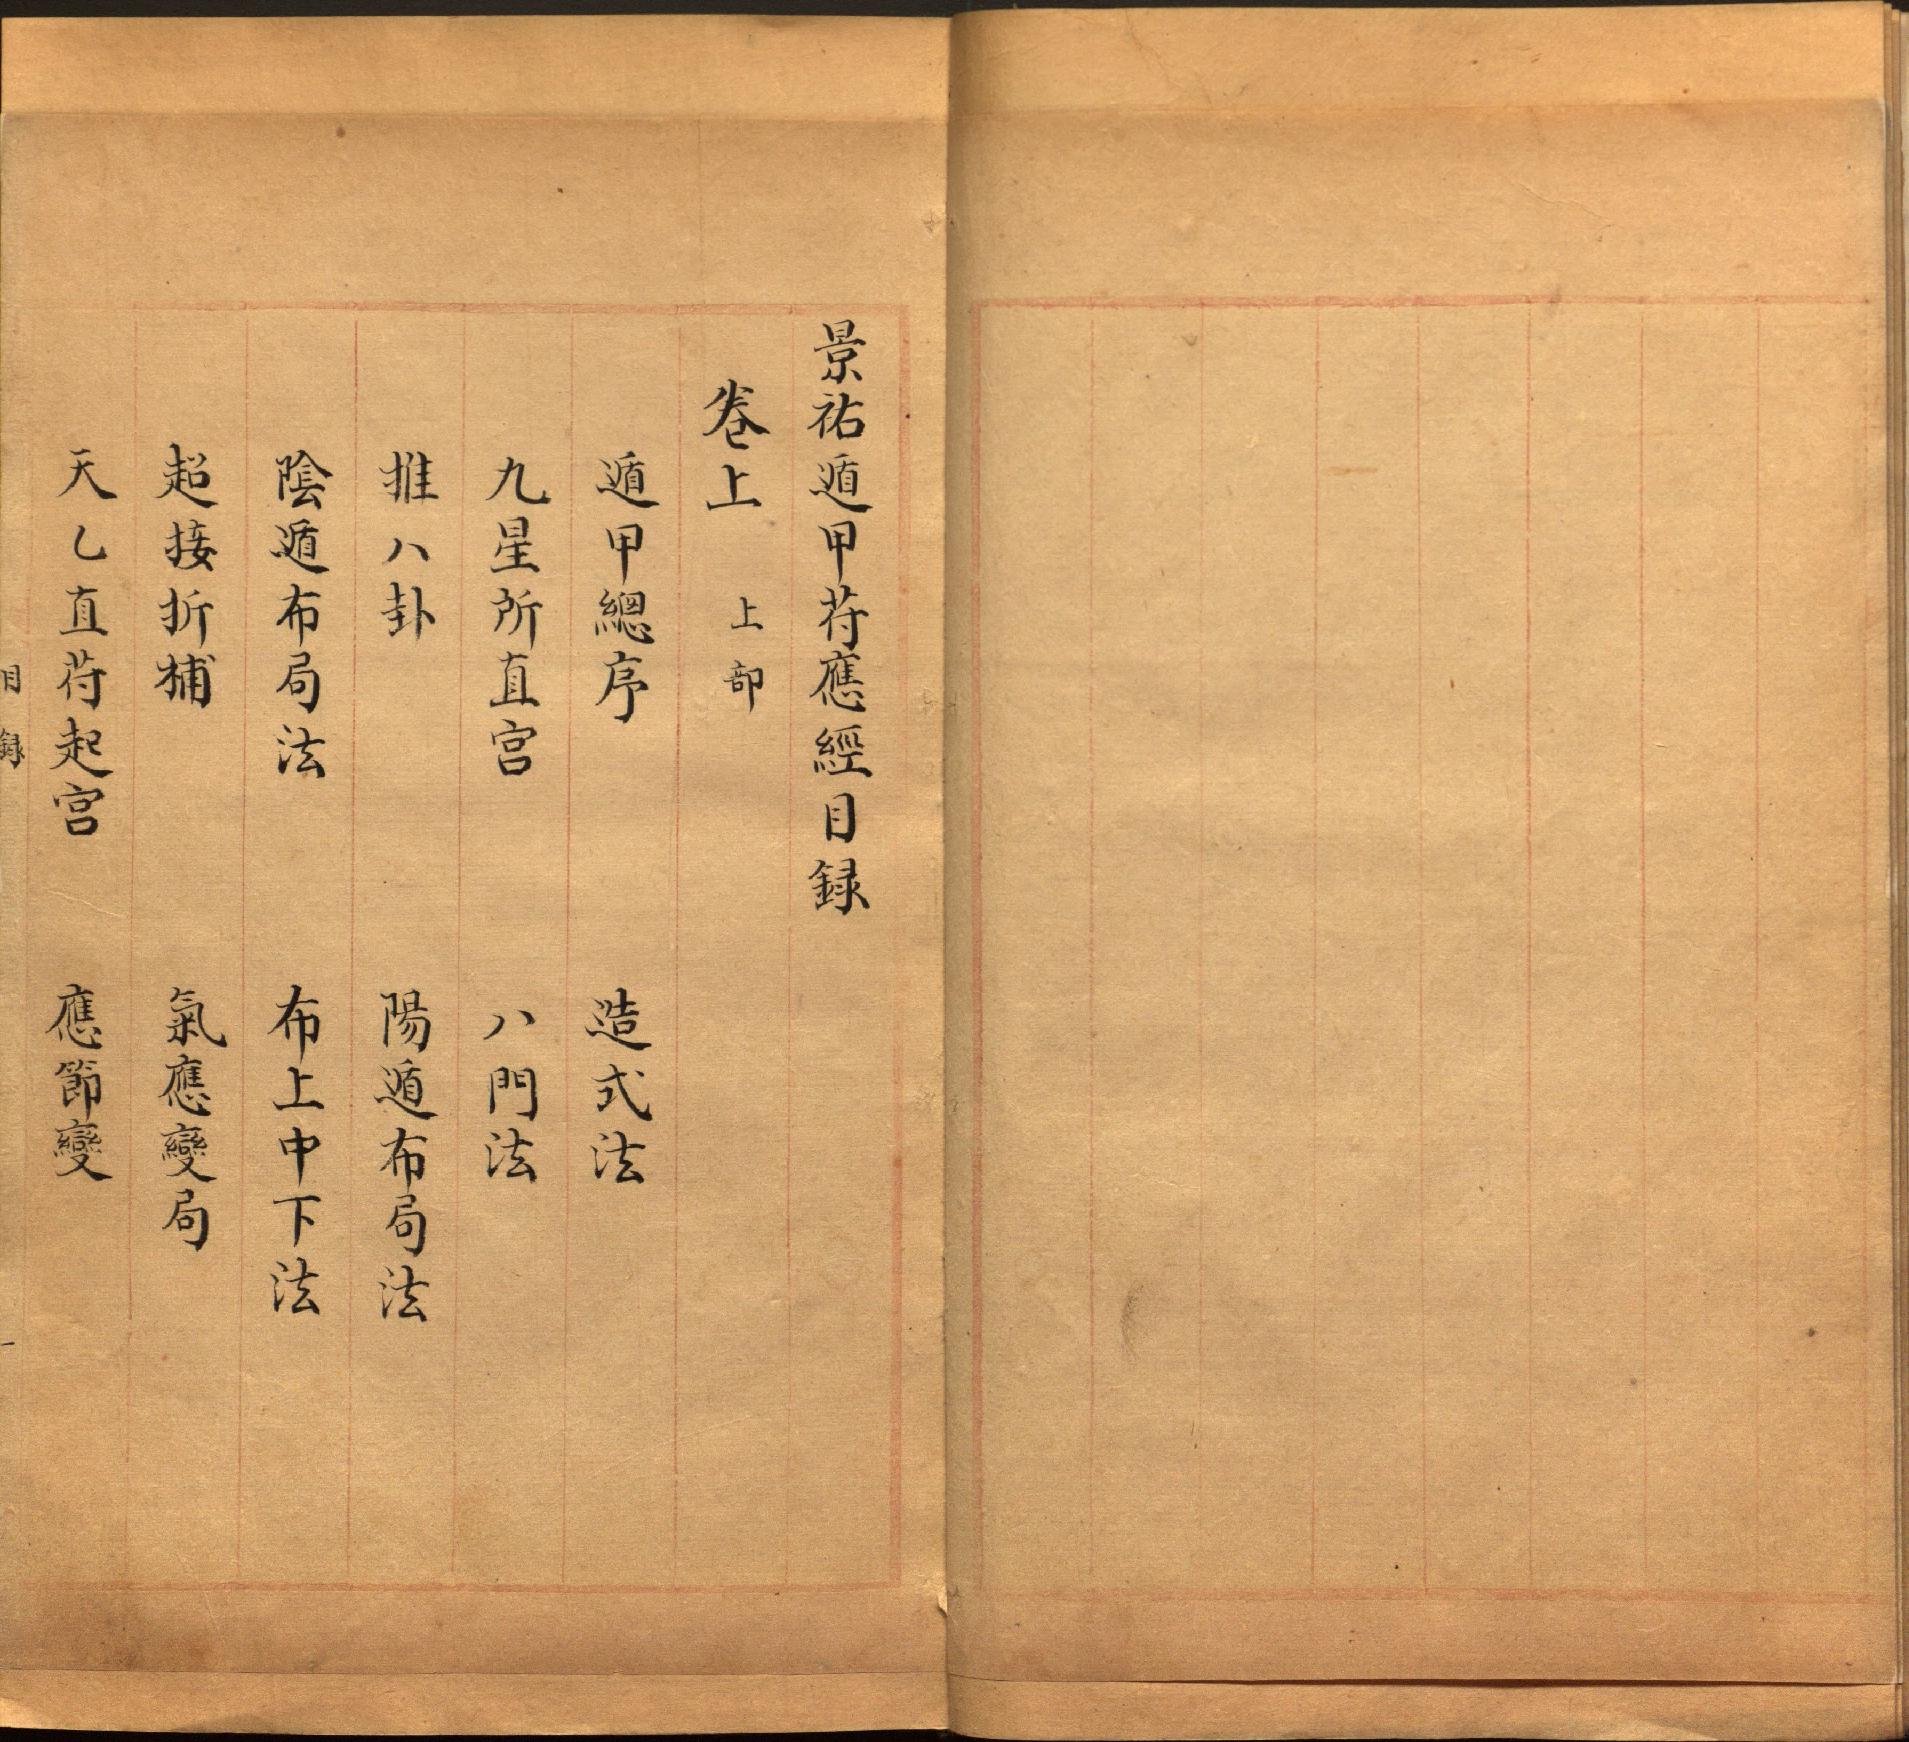 景祐遁甲苻應經目録
卷上　上部
遁甲總序　造式法
九星所直宫　八門法
推八卦　陽遁布局法
陰遁布局法　布上中下法
超接折捕　氣應變局
天乙直苻起宫　應節變
目録　一